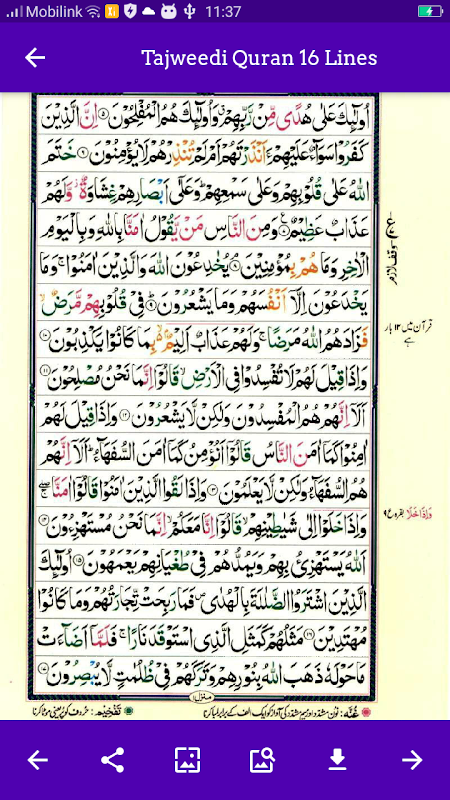 Mobilink 11:37
Tajweedi Quran 16 Lines
اُولٰٓئِكَ عَلٰى هُدًى مِّنْ رَّبِّهِمْ ۙ وَاُولٰٓئِكَ هُمُ الْمُفْلِحُوْنَ ۝۵ اِنَّ الَّذِيْنَ
كَفَرُوْا سَوَآءٌ عَلَيْهِمْ ءَاَنْذَرْتَهُمْ اَمْ لَمْ تُنْذِرْهُمْ لَا يُؤْمِنُوْنَ ۝۶ خَتَمَ
اللّٰهُ عَلٰى قُلُوْبِهِمْ وَعَلٰى سَمْعِهِمْ ؕ وَعَلٰٓى اَبْصَارِهِمْ غِشَاوَةٌ ۫ وَّلَهُمْ
عَذَابٌ عَظِيْمٌ ۝۷ وَمِنَ النَّاسِ مَنْ يَّقُوْلُ اٰمَنَّا بِاللّٰهِ وَبِالْيَوْمِ
الْاٰخِرِ وَمَا هُمْ بِمُؤْمِنِيْنَ ۝۸ يُخٰدِعُوْنَ اللّٰهَ وَالَّذِيْنَ اٰمَنُوْا ۚ وَمَا
يَخْدَعُوْنَ اِلَّآ اَنْفُسَهُمْ وَمَا يَشْعُرُوْنَ ۝۹ فِيْ قُلُوْبِهِمْ مَّرَضٌ ۙ
فَزَادَهُمُ اللّٰهُ مَرَضًا ۚ وَلَهُمْ عَذَابٌ اَلِيْمٌۢ ۙ بِمَا كَانُوْا يَكْذِبُوْنَ ۝۱۰
وَاِذَا قِيْلَ لَهُمْ لَا تُفْسِدُوْا فِي الْاَرْضِ ۙ قَالُوْٓا اِنَّمَا نَحْنُ مُصْلِحُوْنَ ۝۱۱
اَلَآ اِنَّهُمْ هُمُ الْمُفْسِدُوْنَ وَلٰكِنْ لَّا يَشْعُرُوْنَ ۝۱۲ وَاِذَا قِيْلَ لَهُمْ
اٰمِنُوْا كَمَآ اٰمَنَ النَّاسُ قَالُوْٓا اَنُؤْمِنُ كَمَآ اٰمَنَ السُّفَهَآءُ ؕ اَلَآ اِنَّهُمْ
هُمُ السُّفَهَآءُ وَلٰكِنْ لَّا يَعْلَمُوْنَ ۝۱۳ وَاِذَا لَقُوا الَّذِيْنَ اٰمَنُوْا قَالُوْٓا اٰمَنَّا ۖۚ
وَاِذَا خَلَوْا اِلٰى شَيٰطِيْنِهِمْ ۙ قَالُوْٓا اِنَّا مَعَكُمْ ۙ اِنَّمَا نَحْنُ مُسْتَهْزِءُوْنَ ۝۱۴
اَللّٰهُ يَسْتَهْزِئُ بِهِمْ وَيَمُدُّهُمْ فِيْ طُغْيَانِهِمْ يَعْمَهُوْنَ ۝۱۵ اُولٰٓئِكَ
الَّذِيْنَ اشْتَرَوُا الضَّلٰلَةَ بِالْهُدٰى ۪ فَمَا رَبِحَتْ تِّجَارَتُهُمْ وَمَا كَانُوْا
مُهْتَدِيْنَ ۝۱۶ مَثَلُهُمْ كَمَثَلِ الَّذِي اسْتَوْقَدَ نَارًا ۚ فَلَمَّآ اَضَآءَتْ
مَا حَوْلَهٗ ذَهَبَ اللّٰهُ بِنُوْرِهِمْ وَتَرَكَهُمْ فِيْ ظُلُمٰتٍ لَّا يُبْصِرُوْنَ ۝۱۷
قرآن میں ۱۲ بار
ہے
منزل ۱
غُنَّه: نون مشدد اور میم مشدد کی آواز کو ایک الف کے برابر لمبا کرنا
تَفْخِیْم: حروف کو پُر یعنی موٹا کرنا